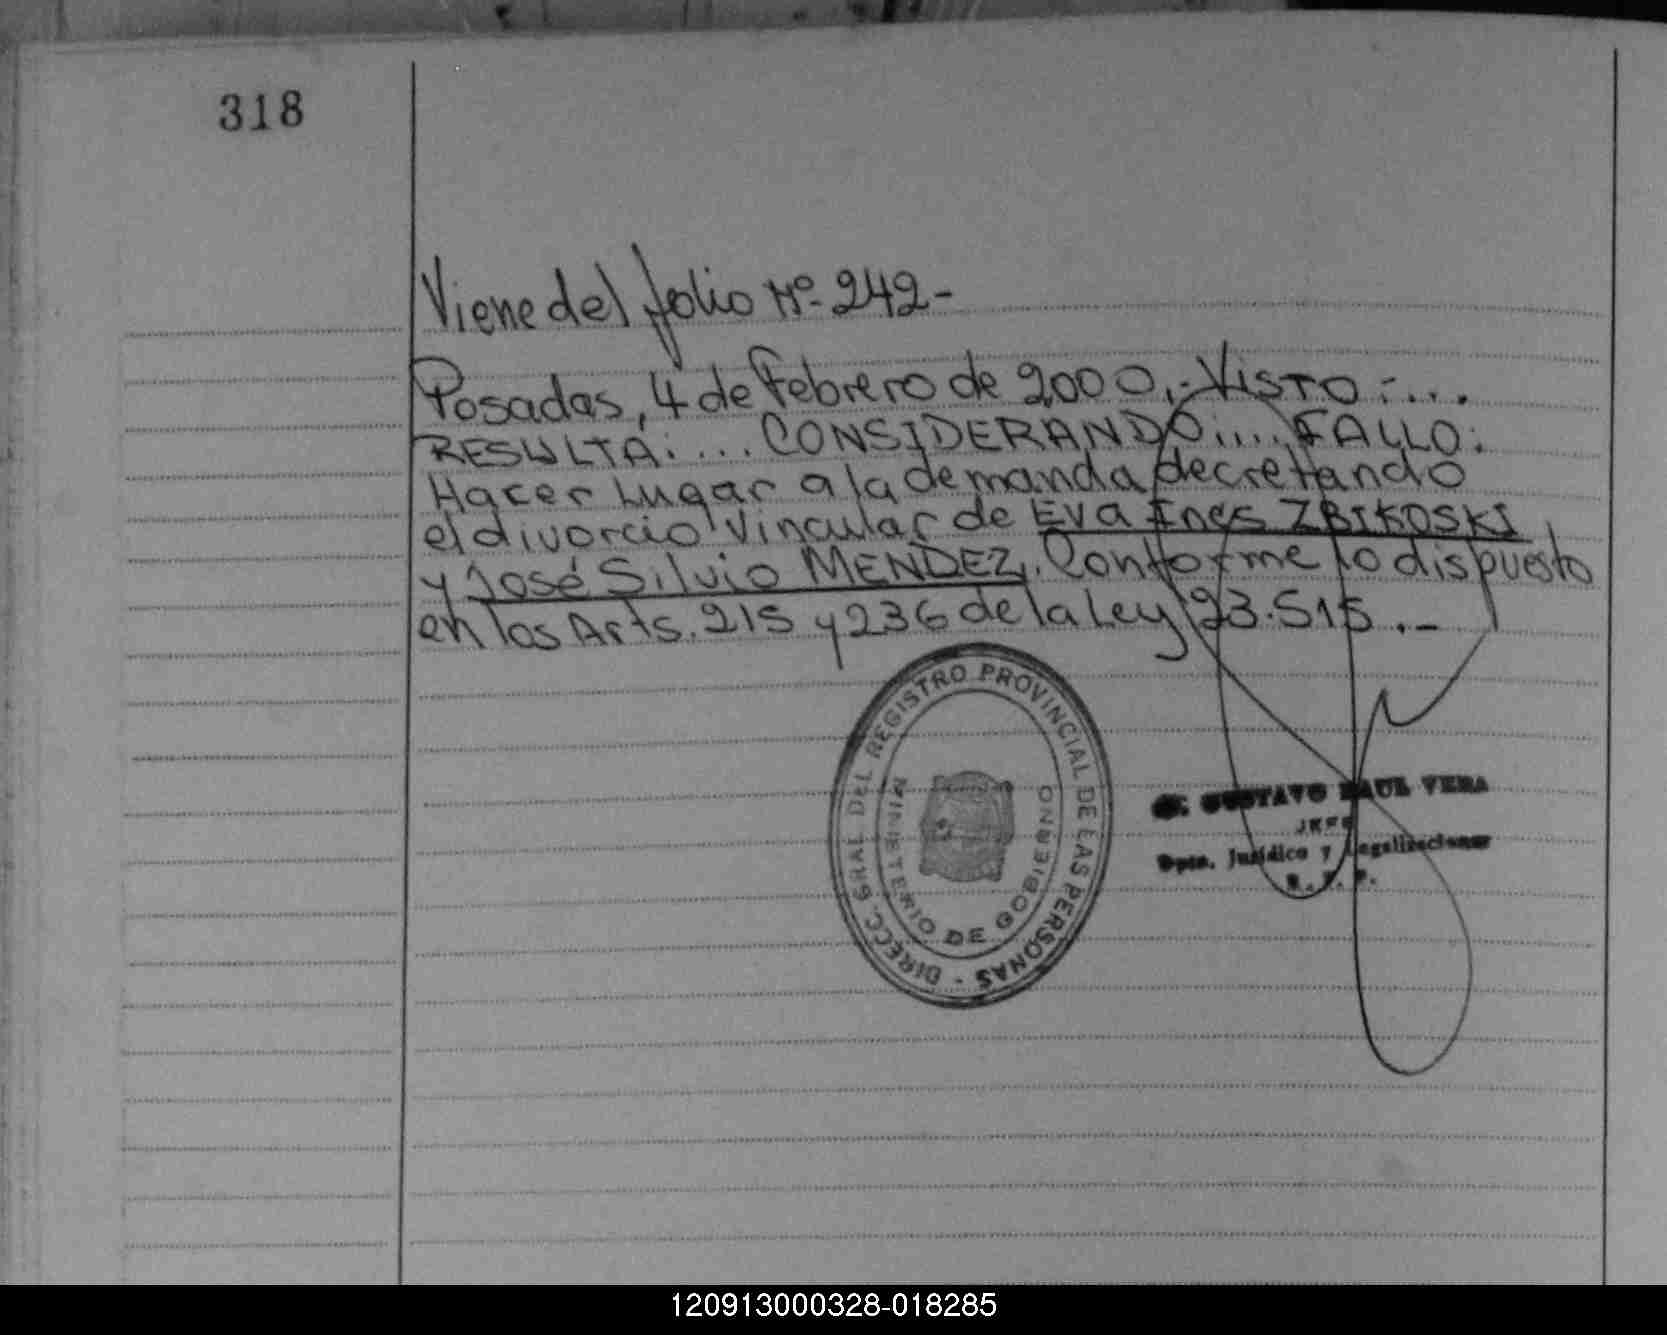 318
Viene del folio Nº 242-
Posadas, 4 de Febrero de 2000.- VISTO:...
RESULTA:... CONSIDERANDO:... FALLO:
Hacer Lugar a la demanda decretando
el divorcio Vincular de Eva Ines ZBIKOSKI
y José Silvio MENDEZ. Conforme lo dispuesto
en los Arts. 215 y 236 de la Ley 23.515.-
DIRECC. GRAL DEL REGISTRO PROVINCIAL DE LAS PERSONAS -
MINISTERIO DE GOBIERNO
GUSTAVO RAUL VERA
JEFE
Dpto. Jurídico y Legalizaciones
R. P. P.
120913000328-018285